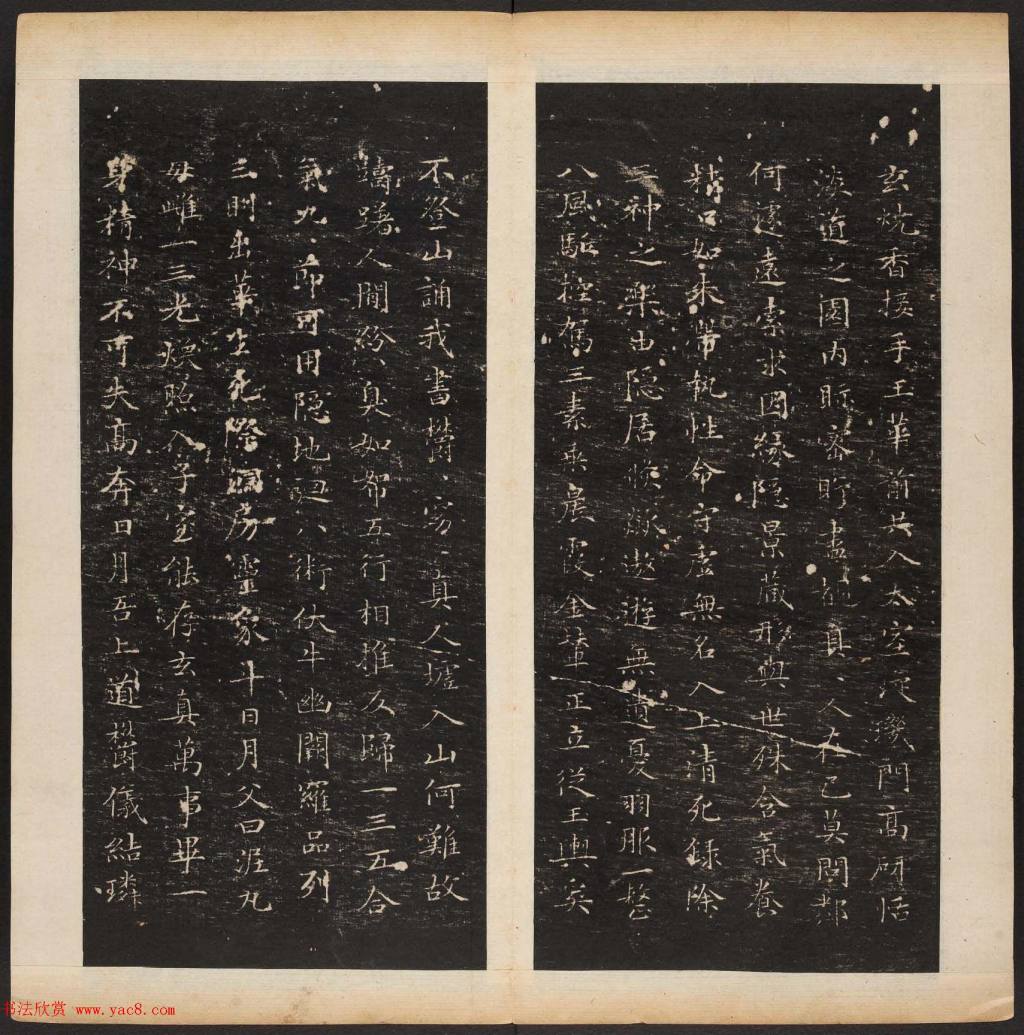 玄燒香接手玉華前共入太室璇璣門高研恬
淡道之園内盼密盻盡覩真〻人在己莫問鄰
何遽遠索求因緣隱景藏形與世殊含氣養
精口如朱帶執性命守虛無名入上清死録除
三神之樂由隱居倏欻遨遊無遺憂羽服一整
八風驅控駕三素乘晨霞金輦正立從玉輿奚
不登山誦我書鬱〻窈〻真人墟入山何難故
躊躇人間紛〻臭如帤五行相推反歸一三五合
氣九〻節可用隱地迴八術伏牛幽闕羅品列
三明出華生死際洞房靈象斗日月父曰泥丸
母雌一三光煥照入子室能存玄真萬事畢一
身精神不可失高奔日月吾上道鬱儀結璘
书法欣赏 www.yac8.com